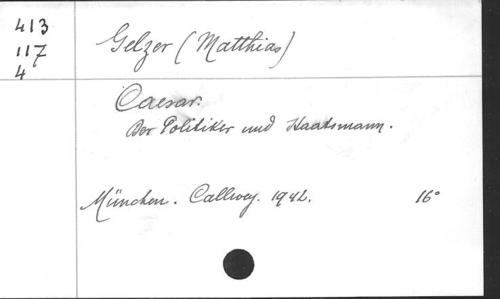 413
117
4
Gelzer (Matthias)
Caesar.
Der Politiker und Staatsmann.
München. Callwey. 1942.
16°